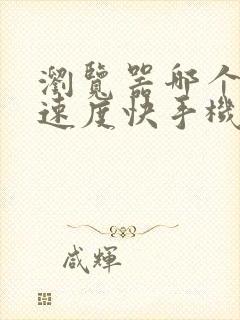 瀏覽器哪个
速度快手機
咸輝